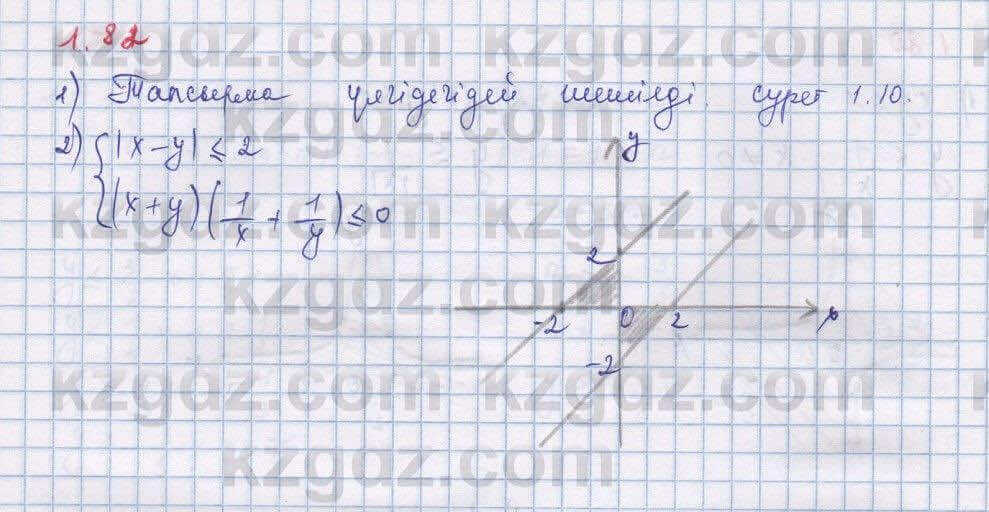 1.82
1) Тапсырма үлгідегідей шешілді. сурет 1.10.
2) { |x-y| ≤ 2
(x+y)(1/x + 1/y) ≤ 0
y
2
-2 0 2 x
-2
kzgdz.com kzgdz.com
kzgdz.com kzgdz.com
kzgdz.com kzgdz.com
kzgdz.com kzgdz.com
kzgdz.com